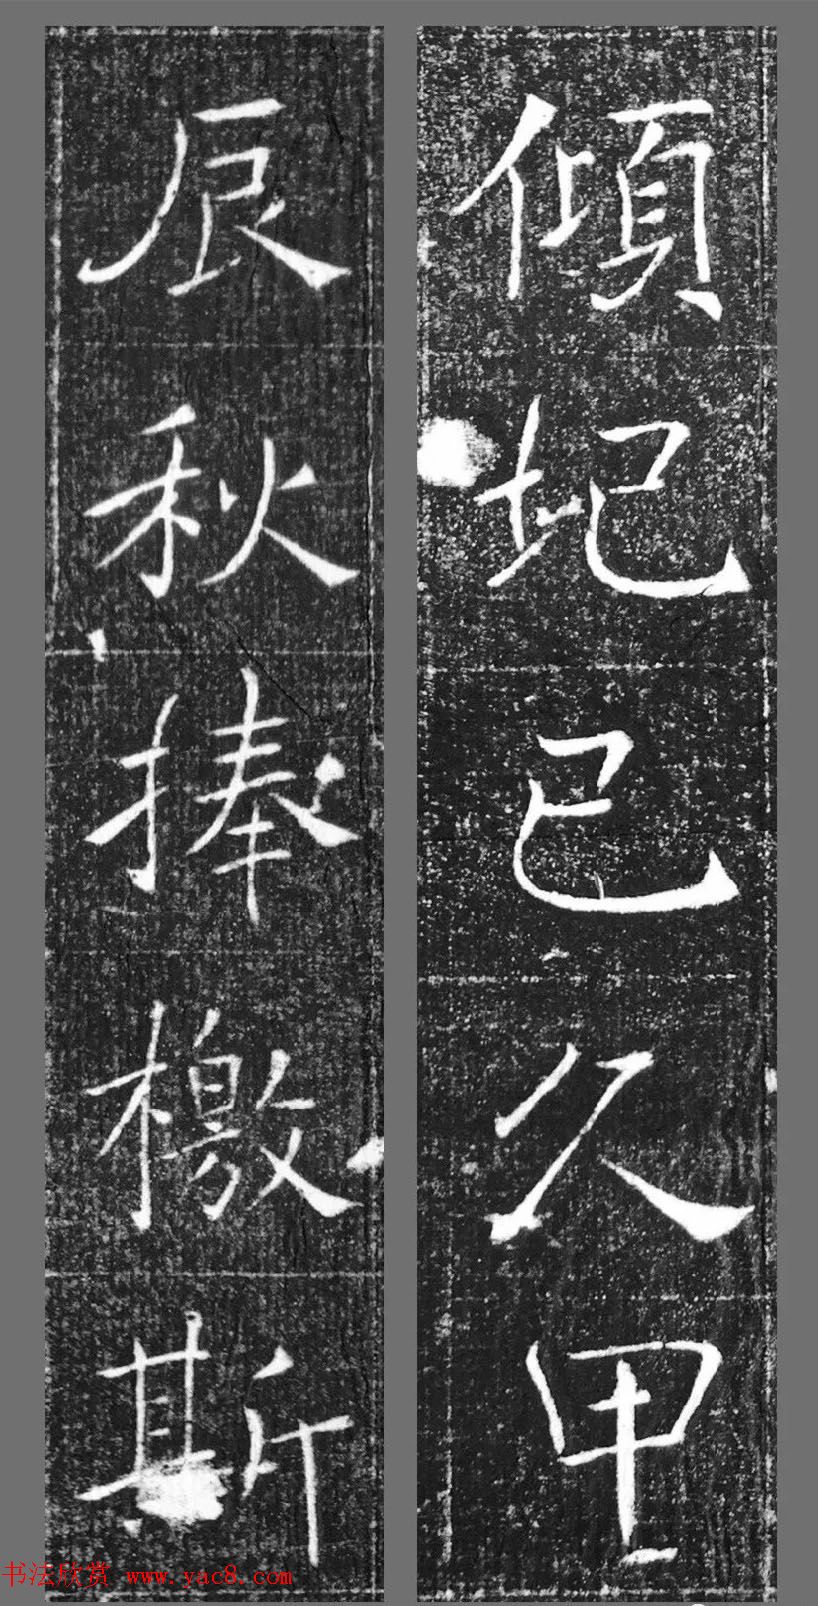 傾圮已久甲
辰秋捧檄斯
书法欣赏 www.yac8.com